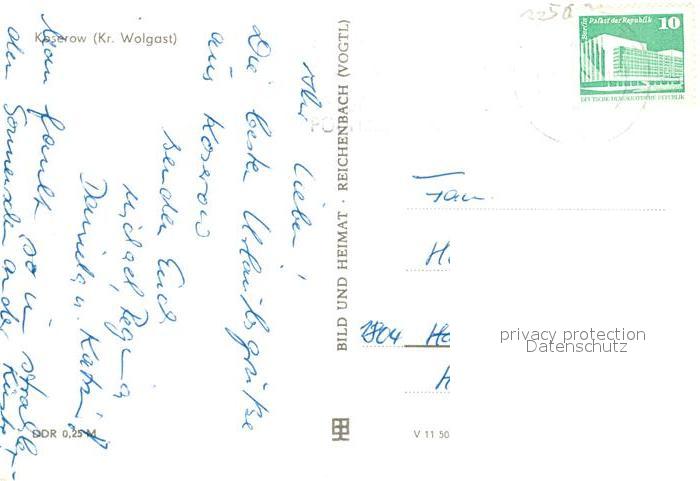 Koserow (Kr. Wolgast)
Ihr Lieben!
Die besten Urlaubsgrüße
aus Koserow
senden Euch
Michael, Regina
Daniela u. Katrin
Man fault so in
der Sonne an der Küste
DDR 0,25 M
BILD UND HEIMAT · REICHENBACH (VOGTL)
V 11 50
Berlin Palast der Republik 10
DEUTSCHE DEMOKRATISCHE REPUBLIK
Frau
H
privacy protection
Datenschutz